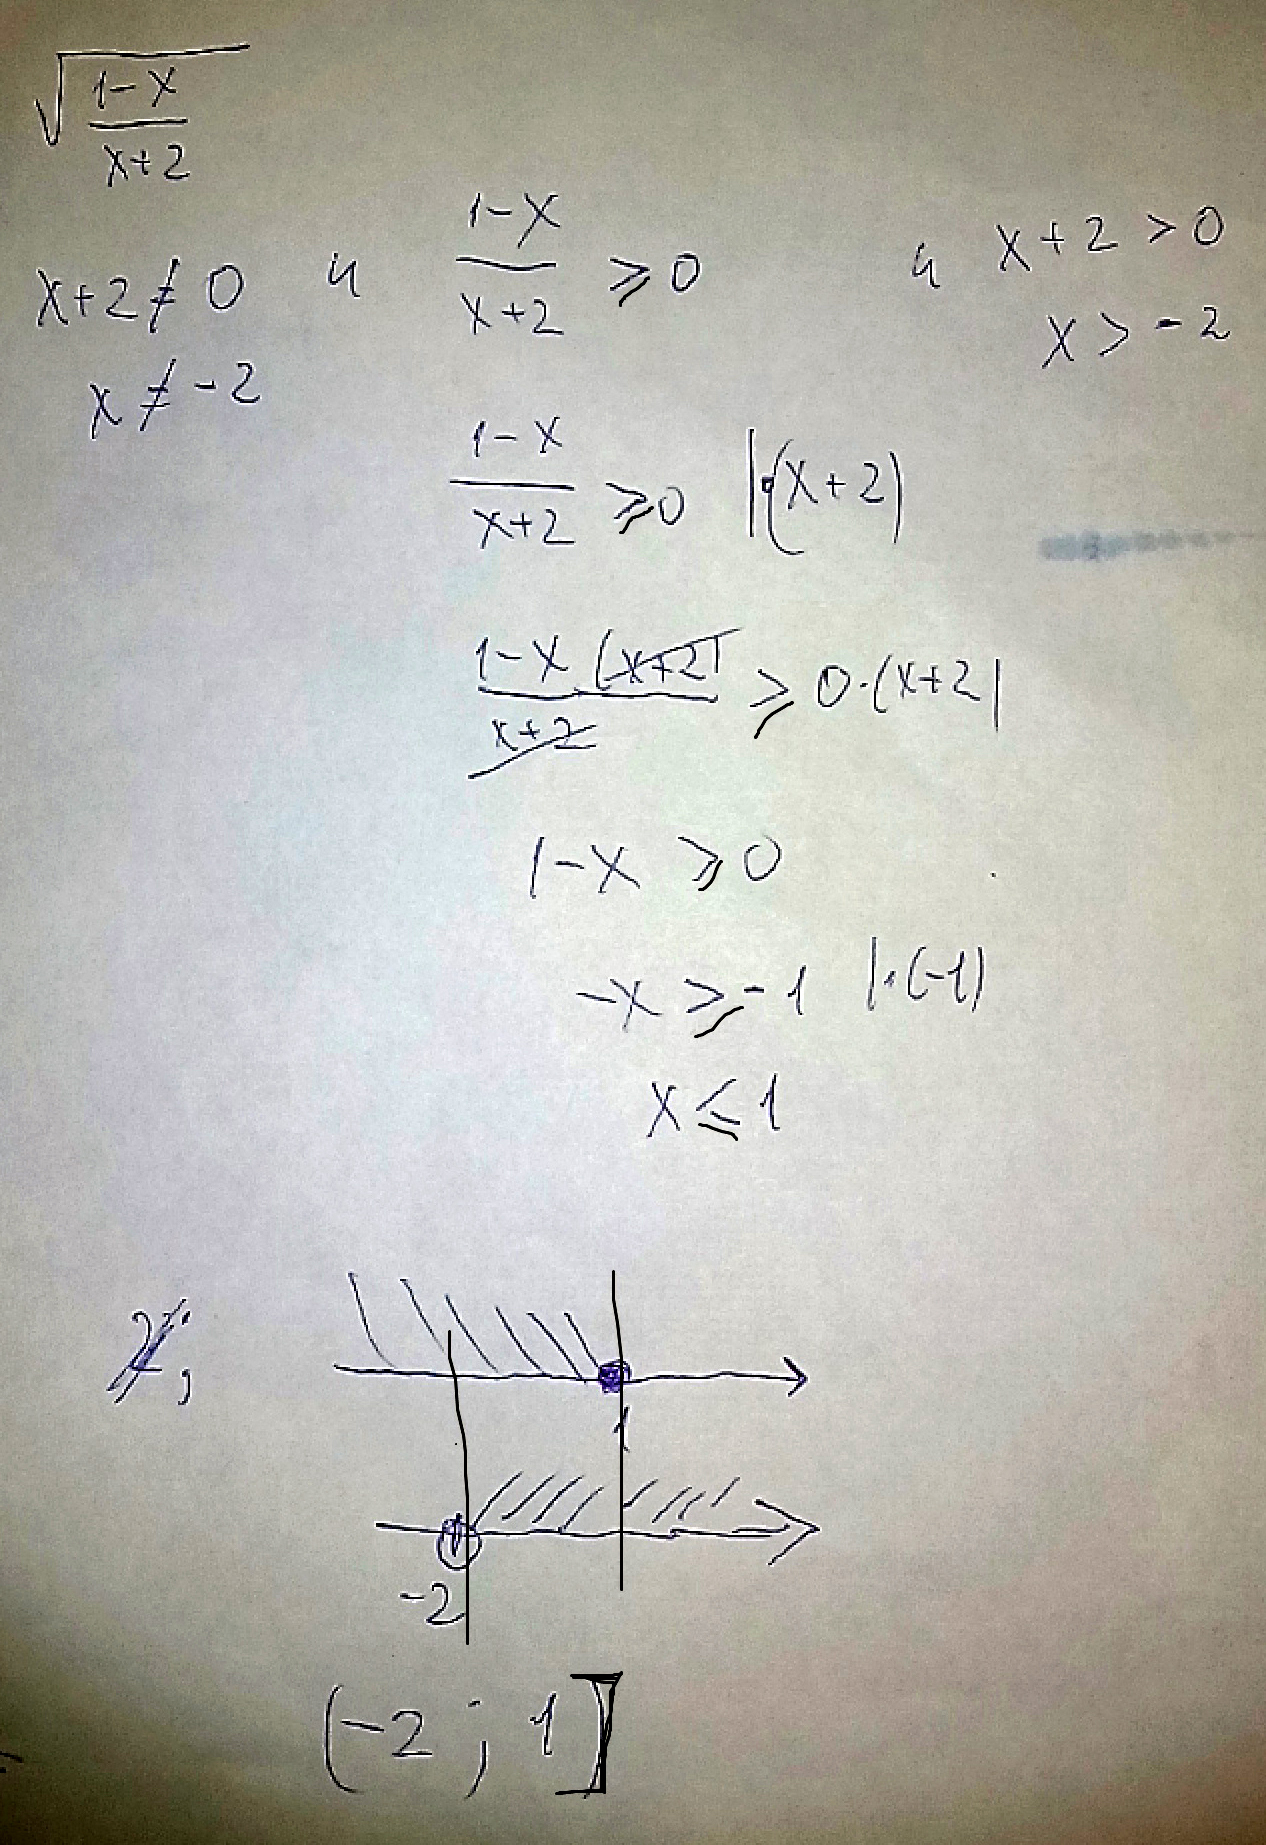 √((1-x)/(x+2))
x+2≠0 и (1-x)/(x+2) ⩾ 0 и x+2>0
x≠-2 x>-2
(1-x)/(x+2) ⩾ 0 |·(x+2)
(1-x (x+2))/(x+2) ⩾ 0·(x+2)
1-x ⩾ 0
-x ⩾ -1 |·(-1)
x ⩽ 1
1
-2
(-2 ; 1]